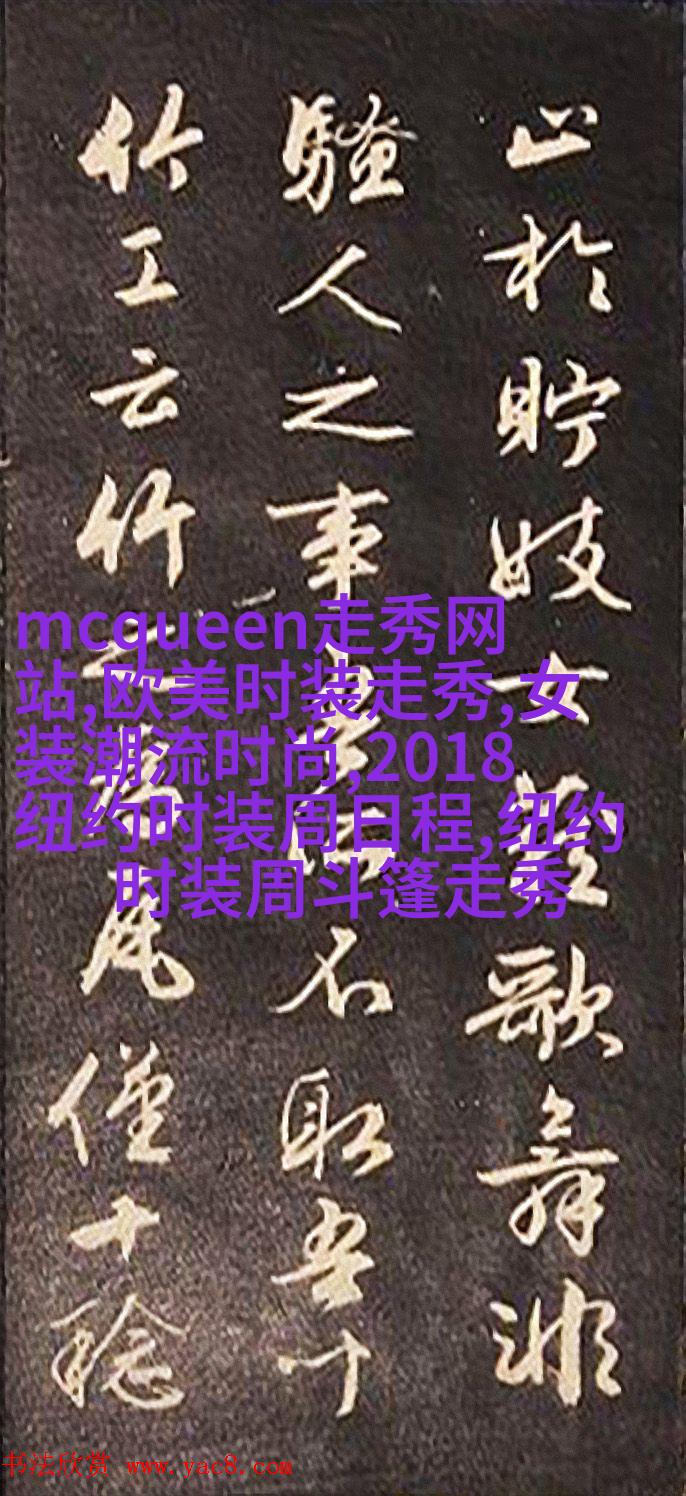 止於貯妓女藏歌舞非
騷人之事不取吾
竹工云竹瓦僅十稔
mcqueen走秀网
站,欧美时装走秀,女
装潮流时尚,2018
纽约时装周日程,纽约
时装周斗篷走秀
书法欣赏 www.yac8.com